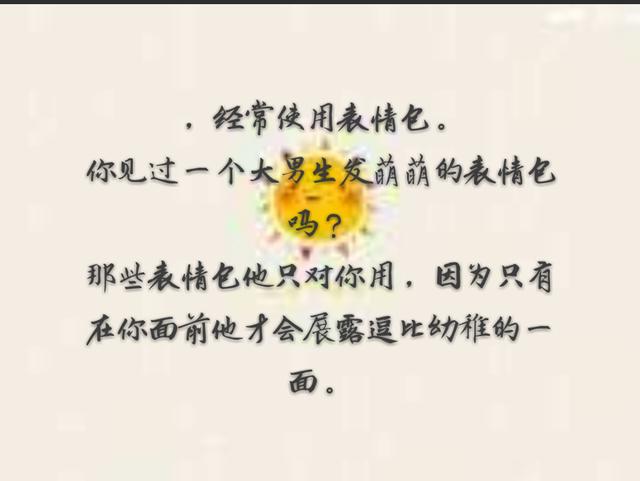 ，经常使用表情包。
你见过一个大男生发萌萌的表情包
吗？
那些表情包他只对你用，因为只有
在你面前他才会展露逗比幼稚的一
面。